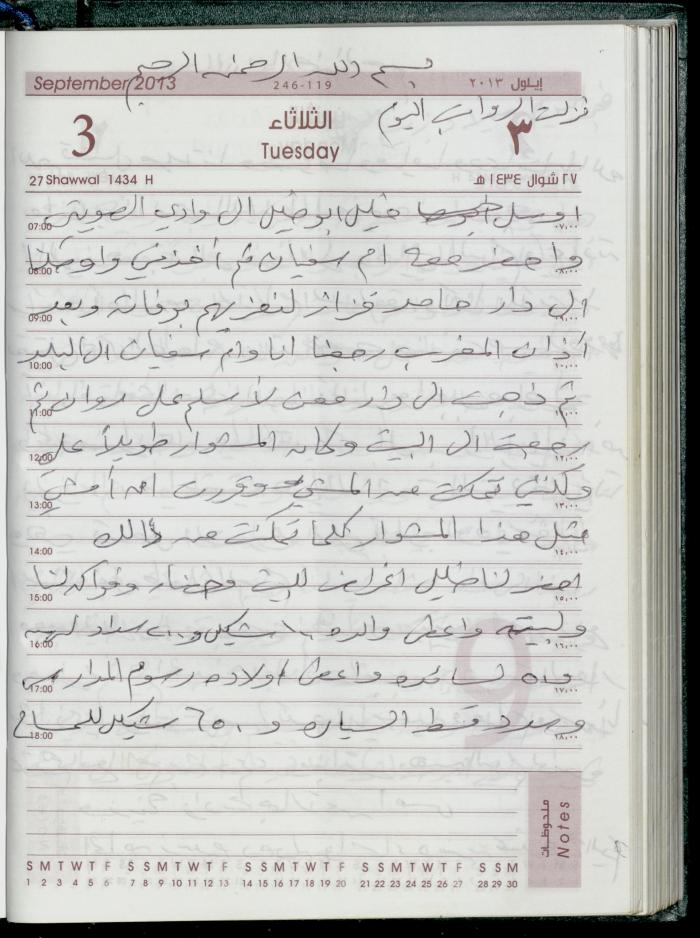 بسم الله الرحمن الرحيم
September 2013 246-119 أيلول ٢٠١٣
نزلت الرواتب اليوم
3 الثلاثاء ٣
Tuesday
27 Shawwal 1434 H ٢٧ شوال ١٤٣٤ هـ
07:00 اوصل خليل ابو خليل الى وادي ٠٧:٠٠
08:00 واحضر معه ام سفيان ثم أخذني واوصلنا ٠٨:٠٠
09:00 الى دار حامد قزاز لنعزيهم بوفاة وبعد ٠٩:٠٠
10:00 أذان المغرب رجعنا انا وام سفيان الى البلد ١٠:٠٠
11:00 ثم ذهبت الى دار معن لأسلم على روان ثم ١١:٠٠
12:00 رجعت الى البيت وكان المشوار طويلاً علي ١٢:٠٠
13:00 ولكني تمكنت من المشي وقررت ان أمشي ١٣:٠٠
14:00 مثل هذا المشوار كلما تمكنت من ذالك
15:00 احضر لنا خليل اغراض للبيت وخضار وفواكه لنا
16:00 ولبيته واعطى والده شيكل و سداد ١٦:٠٠
17:00 واعطى اولاده رسوم المدارس ١٧:٠٠
18:00 وسدد قسط السياره و ٦٥٠ شيكل ١٨:٠٠
ملحوظات Notes
S S M T W T F S S M T W T F S S M T W T F S S M T W T F S S M
1 2 3 4 5 6 7 8 9 10 11 12 13 14 15 16 17 18 19 20 21 22 23 24 25 26 27 28 29 30